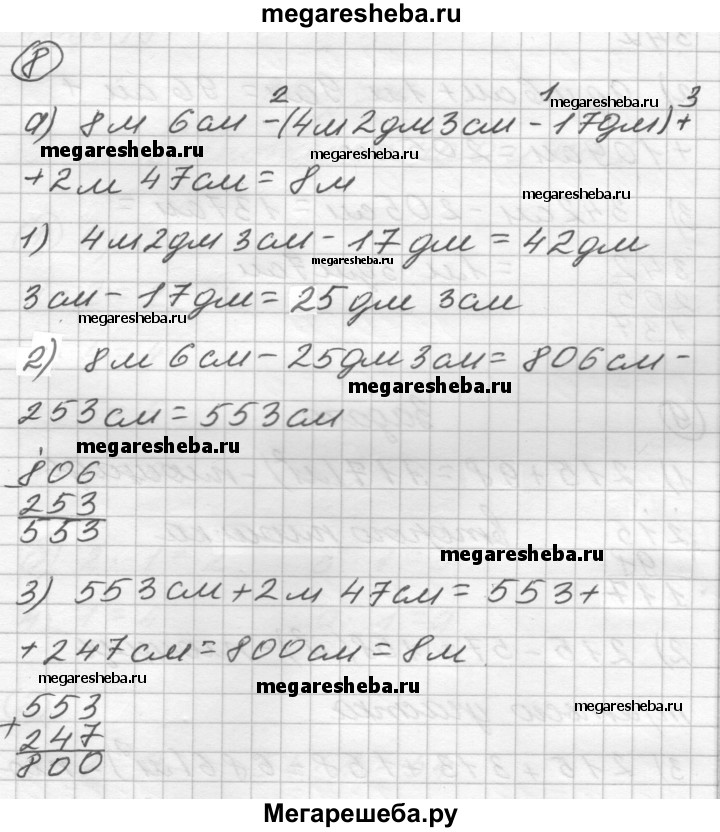 megaresheba.ru
8
2 1 3
а) 8м 6см -(4м2дм3см - 17дм)+
megaresheba.ru
megaresheba.ru
megaresheba.ru
+2м 47см = 8м
megaresheba.ru
1) 4м2дм 3см - 17дм = 42дм
megaresheba.ru
3см - 17дм = 25дм 3см
megaresheba.ru
2) 8м 6см - 25дм3см = 806см -
megaresheba.ru
253см = 553см
megaresheba.ru
- 806
253
553
megaresheba.ru
3) 553см + 2м 47см = 553 +
+247см = 800см = 8м
megaresheba.ru
megaresheba.ru
megaresheba.ru
+ 553
247
800
Мегарешеба.ру